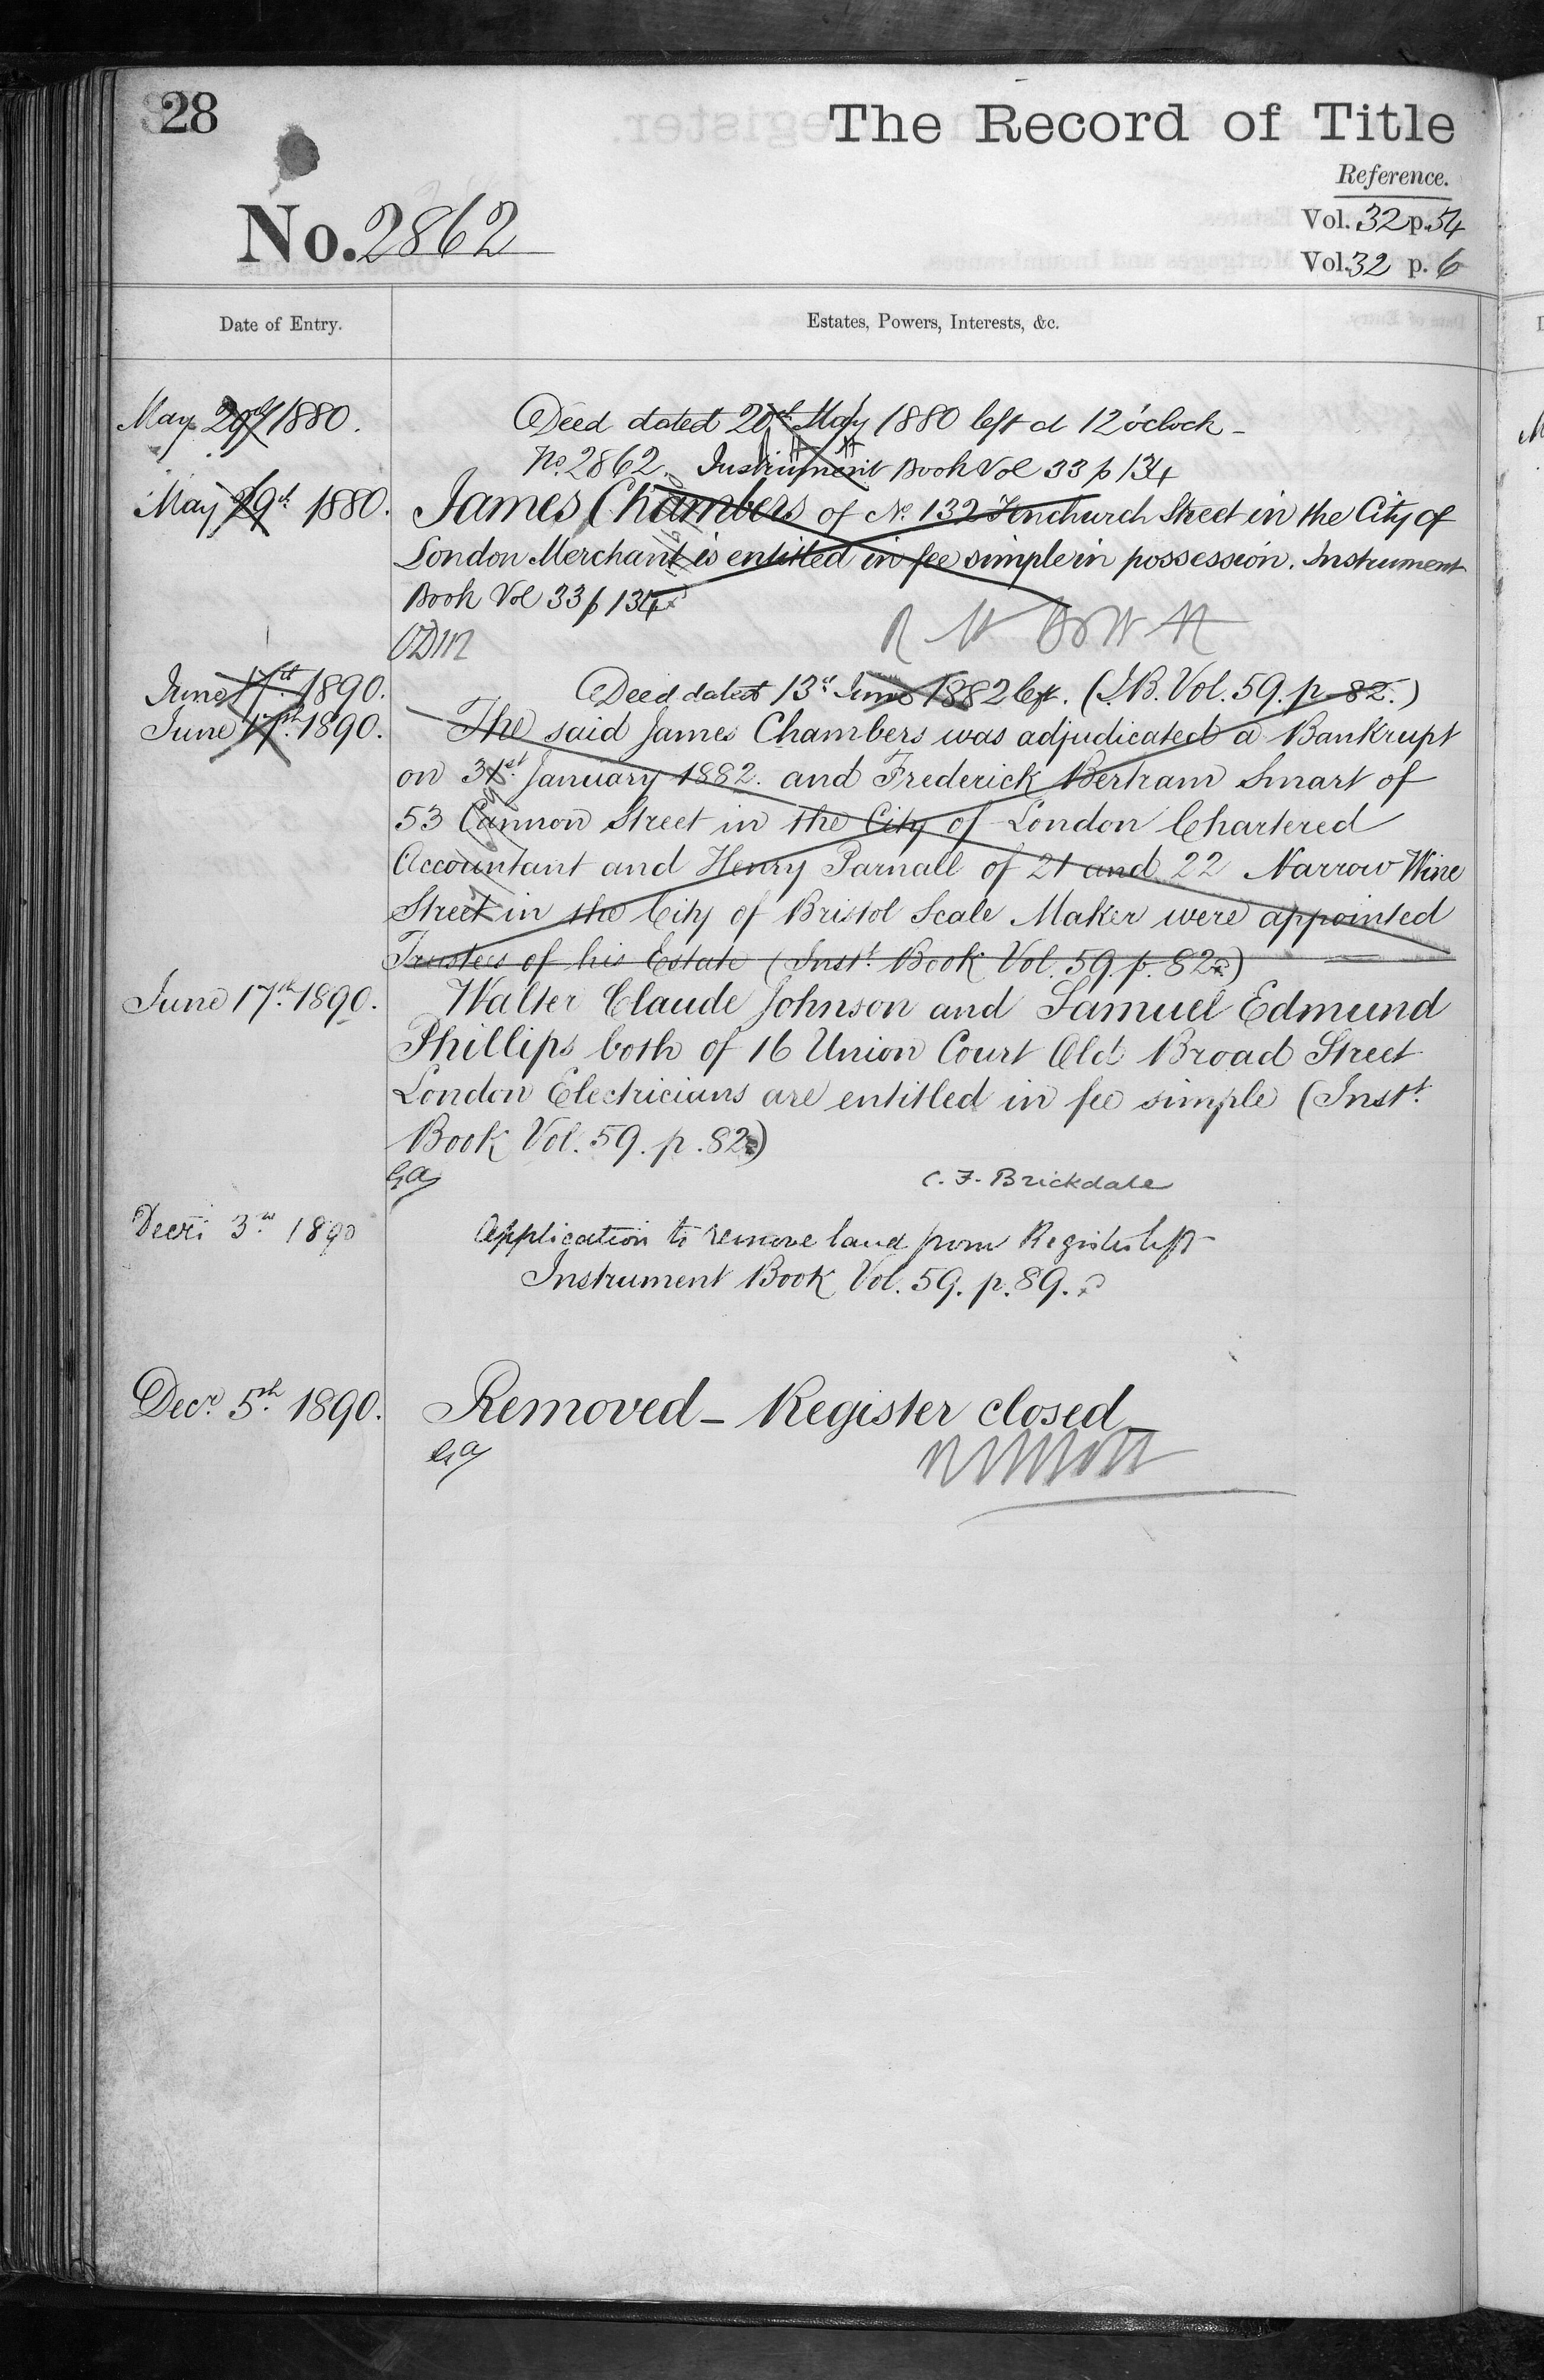 28
The Record of Title
Reference.
No. 2862
Vol. 32 p. 54
Vol. 32 p. 6
Date of Entry.
Estates, Powers, Interests, &c.
May 1880.
Deed dated 20th May 1880 left at 12 o'clock -
No. 2862. Instrument Book Vol 33 p 134
May 29th 1880.
James Chambers of No. 132 Fenchurch Street in the City of
London Merchant is entitled in fee simple in possession. Instrument
Book Vol 33 p 134
June 17th 1890.
Deed dated 13th June 1882 left. (I.B. Vol. 59. p. 82.)
June 17th 1890.
The said James Chambers was adjudicated a Bankrupt
on 31st January 1882. and Frederick Bertram Smart of
53 Cannon Street in the City of London Chartered
Accountant and Henry Parnall of 21 and 22 Narrow Wine
Street in the City of Bristol Scale Maker were appointed
Trustees of his Estate (Inst. Book Vol. 59. p. 82.)
June 17th 1890.
Walter Claude Johnson and Samuel Edmund
Phillips both of 16 Union Court Old Broad Street
London Electricians are entitled in fee simple (Inst.
Book Vol. 59. p. 82)
C. F. Brickdale
Decr. 3rd 1890
Application to remove land from Register left
Instrument Book Vol. 59. p. 89.
Decr. 5th 1890.
Removed - Register closed